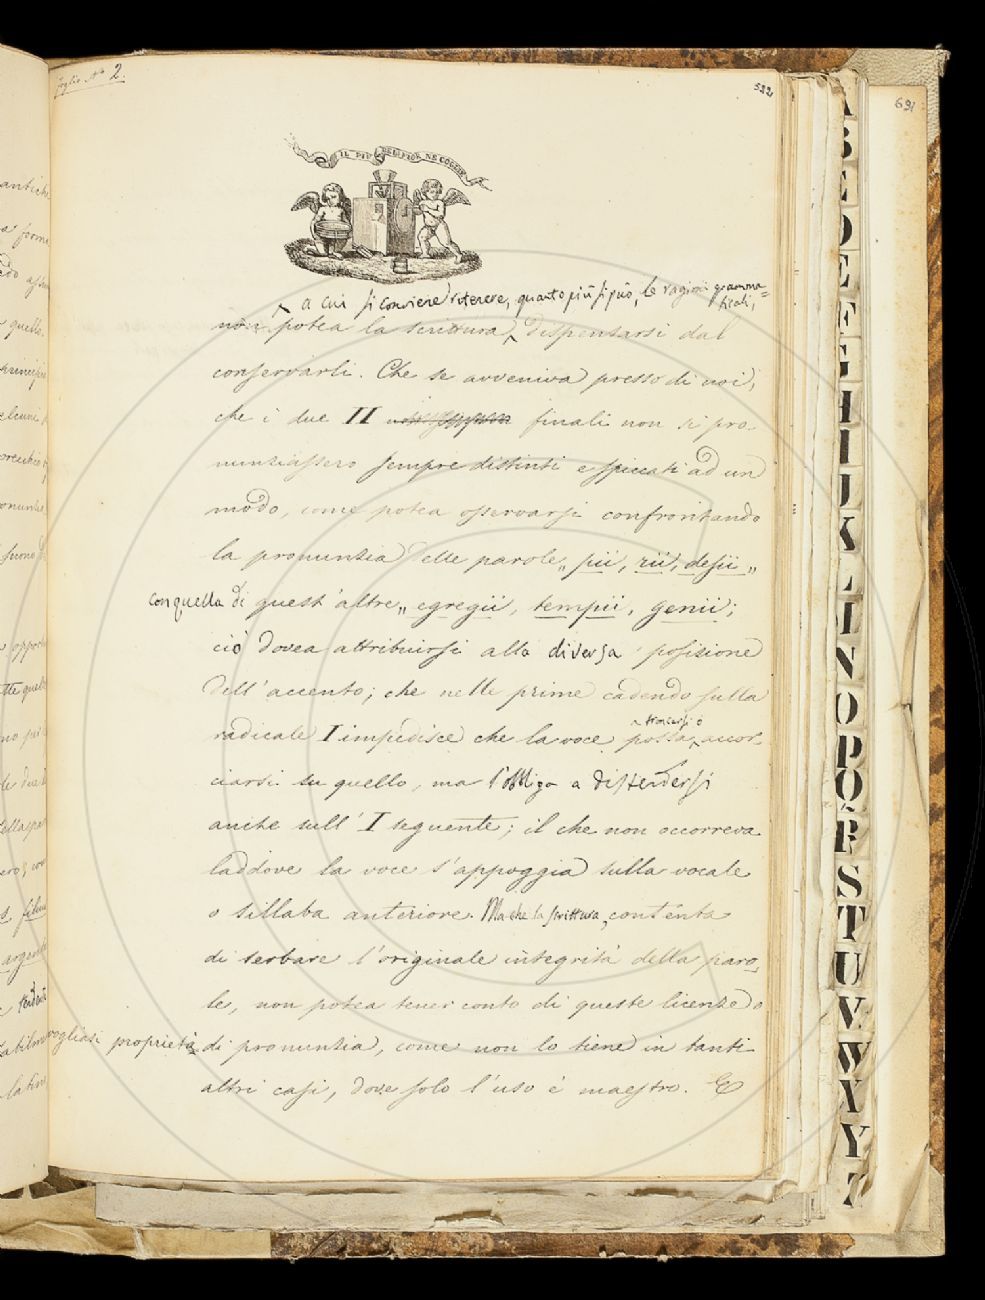 Foglio N.° 2.
522
691
IL PIÙ BEL FIOR NE COGLIE
a cui si conviene ritenere, quanto più si può, le ragioni gramma=
ticali,
non potea la scrittura dispensarsi dal
conservarli. Che se avveniva presso di noi,
che i due II finali non si pro-
nunziassero sempre distinti e spiccati ad un
modo, come potea osservarsi confrontando
la pronunzia delle parole „ pii, rii, desii „
con quella di quest'altre „ egregii, tempii, genii;
ciò dovea attribuirsi alla diversa posizione
dell'accento; che nelle prime cadendo sulla
troncarsi o
radicale I impedisce che la voce possa accor-
ciarsi su quello, ma l'obbliga a distendersi
anche sull'I seguente; il che non occorreva
laddove la voce s'appoggia sulla vocale
o sillaba anteriore. Ma che la scrittura, contenta
di serbare l'originale integrità della paro-
le, non potea tener conto di queste licenze o
vogliasi proprietà di pronunzia, come non lo tiene in tanti
altri casi, dove solo l'uso è maestro. E
A
B
C
D
E
F
G
H
I
J
K
L
M
N
O
P
Q
R
S
T
U
V
W
X
Y
Z